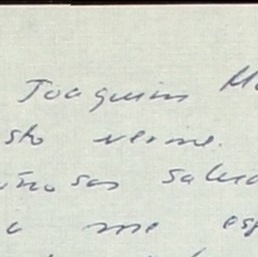 Joaquim M
sto verme.
ñosas salud
a me esp